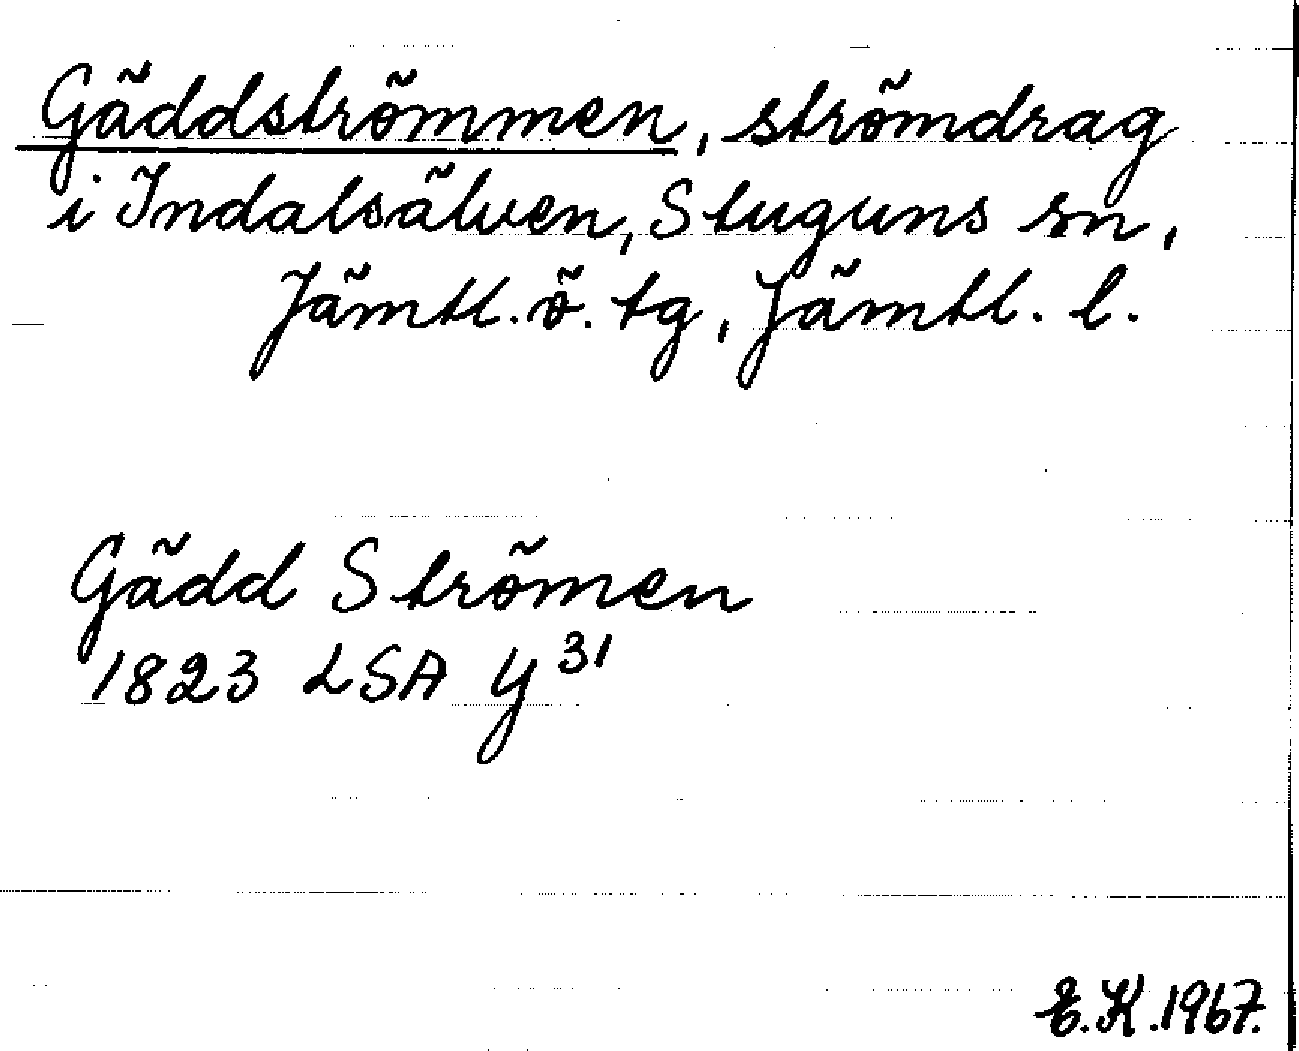 Gäddströmmen, strömdrag
i Indalsälven, Stuguns sn,
Jämtl. ö. tg, Jämtl. l.
Gädd Strömen
1823 LSA Y³¹
E.K. 1967.